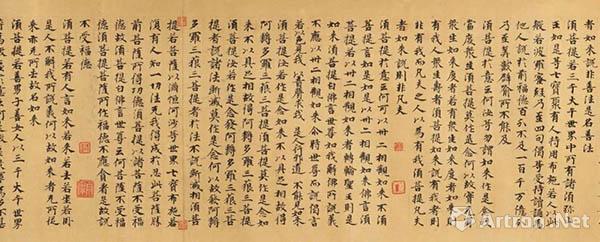 者如来說非善法是名善法
須菩提若三千大千世界中所有諸須弥
山王如是等七寶聚有人持用布施若人以此
般若波羅蜜經乃至四句偈等受持讀誦為
他人說於前福德百分不及一百千万億分
乃至筭數譬喻所不能及
須菩提於意云何汝等勿謂如来作是念我
當度衆生須菩提莫作是念何以故實无有
衆生如来度者若有衆生如来度者如来則
有我人衆生壽者須菩提如来說有我者則
非有我而凡夫之人以為有我須菩提凡夫
者如来說則非凡夫
須菩提於意云何可以卅二相觀如来不須
菩提言如是如是以卅二相觀如来佛言須
菩提若以卅二相觀如来者轉輪聖王則是
如来須菩提白佛言世尊如我解佛所說義
不應以卅二相觀如来尒時世尊而說偈言
若以色見我 以音聲求我 是人行邪道 不能見如来
須菩提汝若作是念如来不以具足相故得
阿耨多羅三藐三菩提須菩提莫作是念如来
不以具足相故得阿耨多羅三藐三菩提
須菩提汝若作是念發阿耨多羅三藐三菩
提者說諸法斷滅莫作是念何以故發阿耨
多羅三藐三菩提者於法不說斷滅相須菩
提若菩薩以滿恒河沙等世界七寶布施若
復有人知一切法无我得成於忍此菩薩勝
前菩薩所得功德須菩提以諸菩薩不受福
德故須菩提白佛言世尊云何菩薩不受福
德須菩提菩薩所作福德不應貪著是故說
不受福德
須菩提若有人言如来若来若去若坐若卧
是人不解我所說義何以故如来者无所從
来亦无所去故名如来
須菩提若善男子善女人以三千大千世界
Artron.Net